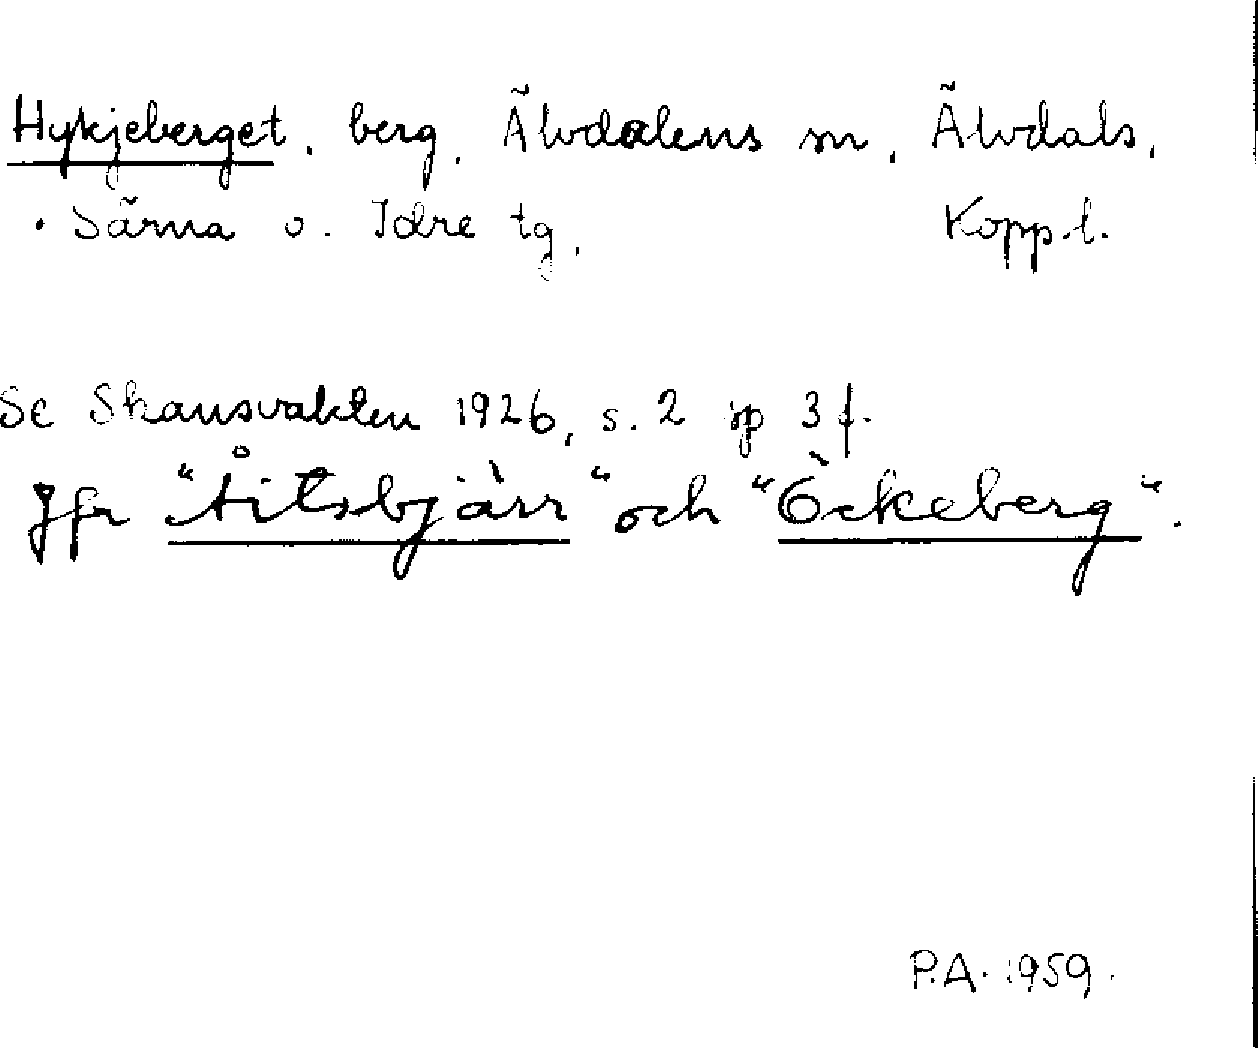 Hykjeberget, berg, Älvdalens sn, Älvdals,
Särna o. Idre tg, Kopp.l.
Se Skansvakten 1926, s. 2 sp 3 f.
Jfr "Åitsbjärr" och "Öckeberg".
P.A. 1959.